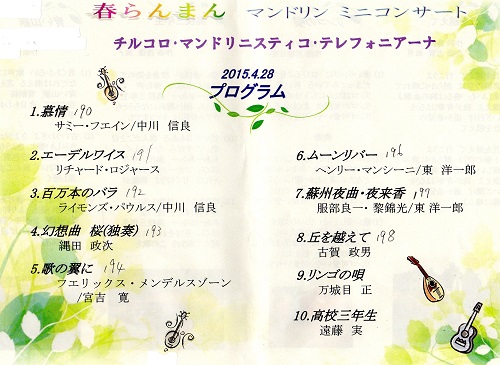 春らんまん マンドリン ミニコンサート
チルコロ・マンドリニスティコ・テレフォニアーナ
2015.4.28
プログラム
1.慕情 190
サミー・フエイン/中川 信良
2.エーデルワイス 191
リチャード・ロジャース
3.百万本のバラ 192
ライモンズ・パウルス/中川 信良
4.幻想曲 桜(独奏) 193
縄田 政次
5.歌の翼に 194
フエリックス・メンデルスゾーン
/宮吉 寛
6.ムーンリバー 196
ヘンリー・マンシーニ/東 洋一郎
7.蘇州夜曲・夜来香 197
服部良一・黎錦光/東 洋一郎
8.丘を越えて 198
古賀 政男
9.リンゴの唄
万城目 正
10.高校三年生
遠藤 実